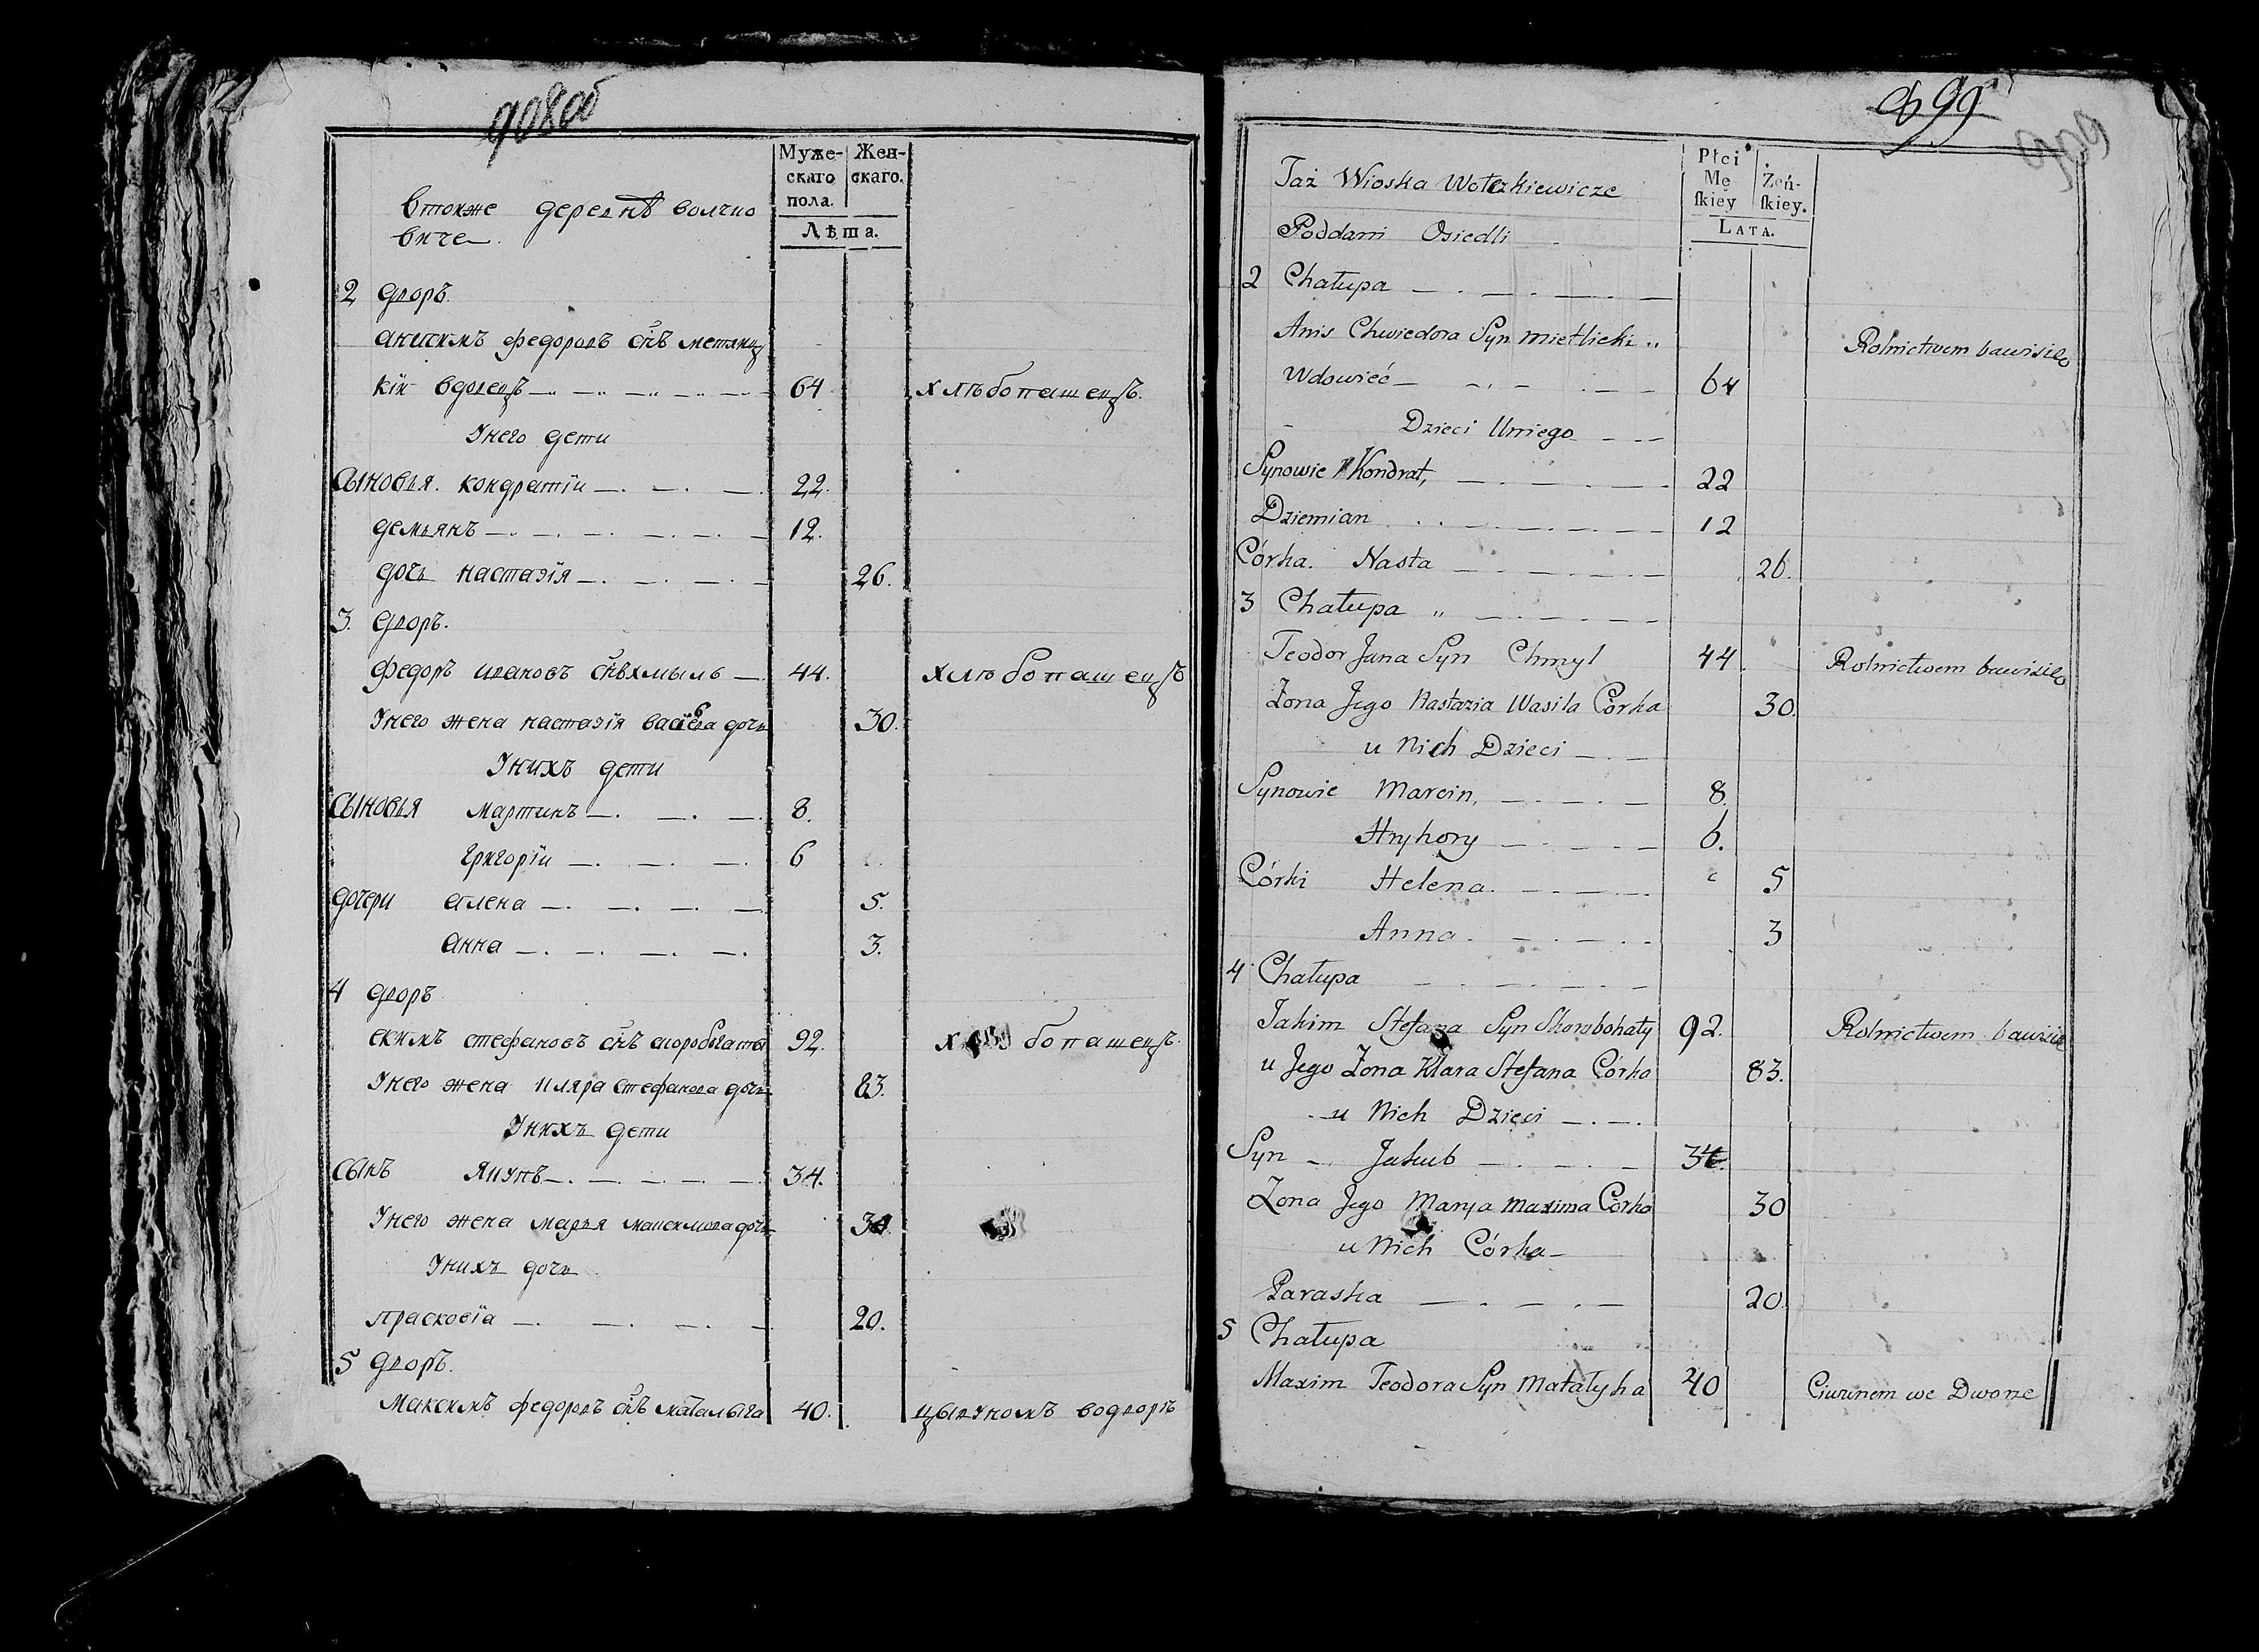 908об
Муже-
скаго
пола.
Жен-
скаго.
Лѣта.
Втокже деревнѣ волчко
виче
2 дворъ.
анисимъ федоровъ снъ метлиц
кїи вдовецъ 64 хлѣбопашецъ.
Унего дети
Сыновья. кондратїи 22.
демьянъ 12.
дочь настазїя 26.
3. дворъ.
Федоръ ивановъ снъ хмыль 44. хлѣбопашецъ
Унего жена настазїя дочь 30.
Унихъ дети
Сыновья мартинъ 8.
григорїи 6
дочери алена 5.
анна 3.
4 дворъ
екимъ стефановъ снъ скоробогаты 92. хлѣбопашецъ.
Унего жена кляра стефанова дочь 83.
Унихъ дети
сынъ якупъ 34.
Унего жена марья максимова дочь 30.
Унихъ дочь
прасковїа 20.
5 дворъ.
Максимъ федоровъ снъ маталыга 40. цывуномъ водворѣ
99
909
Płci
Mę
skiey
Żeń-
skiey.
LATA.
Taż Wioska Wołczkiewicze
Poddani Osiedli
2 Chałupa
Anis Chwiedora Syn Mietlicki Rolnictwem bawisię
Wdowieć 64
Dzieci Uniego
Synowie Kondrat, 22
Dziemian 12
Córka. Nasta 26.
3 Chałupa
Teodor Jana Syn Chmyl 44. Rolnictwem bawisię
Żona Jego Nastazia Wasila Córka 30.
u Nich Dzieci
Synowie Marcin, 8
Hryhory 6.
Córki Helena. 5
Anna. 3
4 Chałupa
Jakim Stefana Syn Skorobohaty 92. Rolnictwem bawisię
u Jego Żona Klara Stefana Córka 83.
u Nich Dzieci
Syn Jakub 34.
Żona Jego Marya Maxima Córka 30
u Nich Córka
Paraska 20.
5 Chałupa
Maxim Teodora Syn Matałyha 40 Ciwunem we Dworze